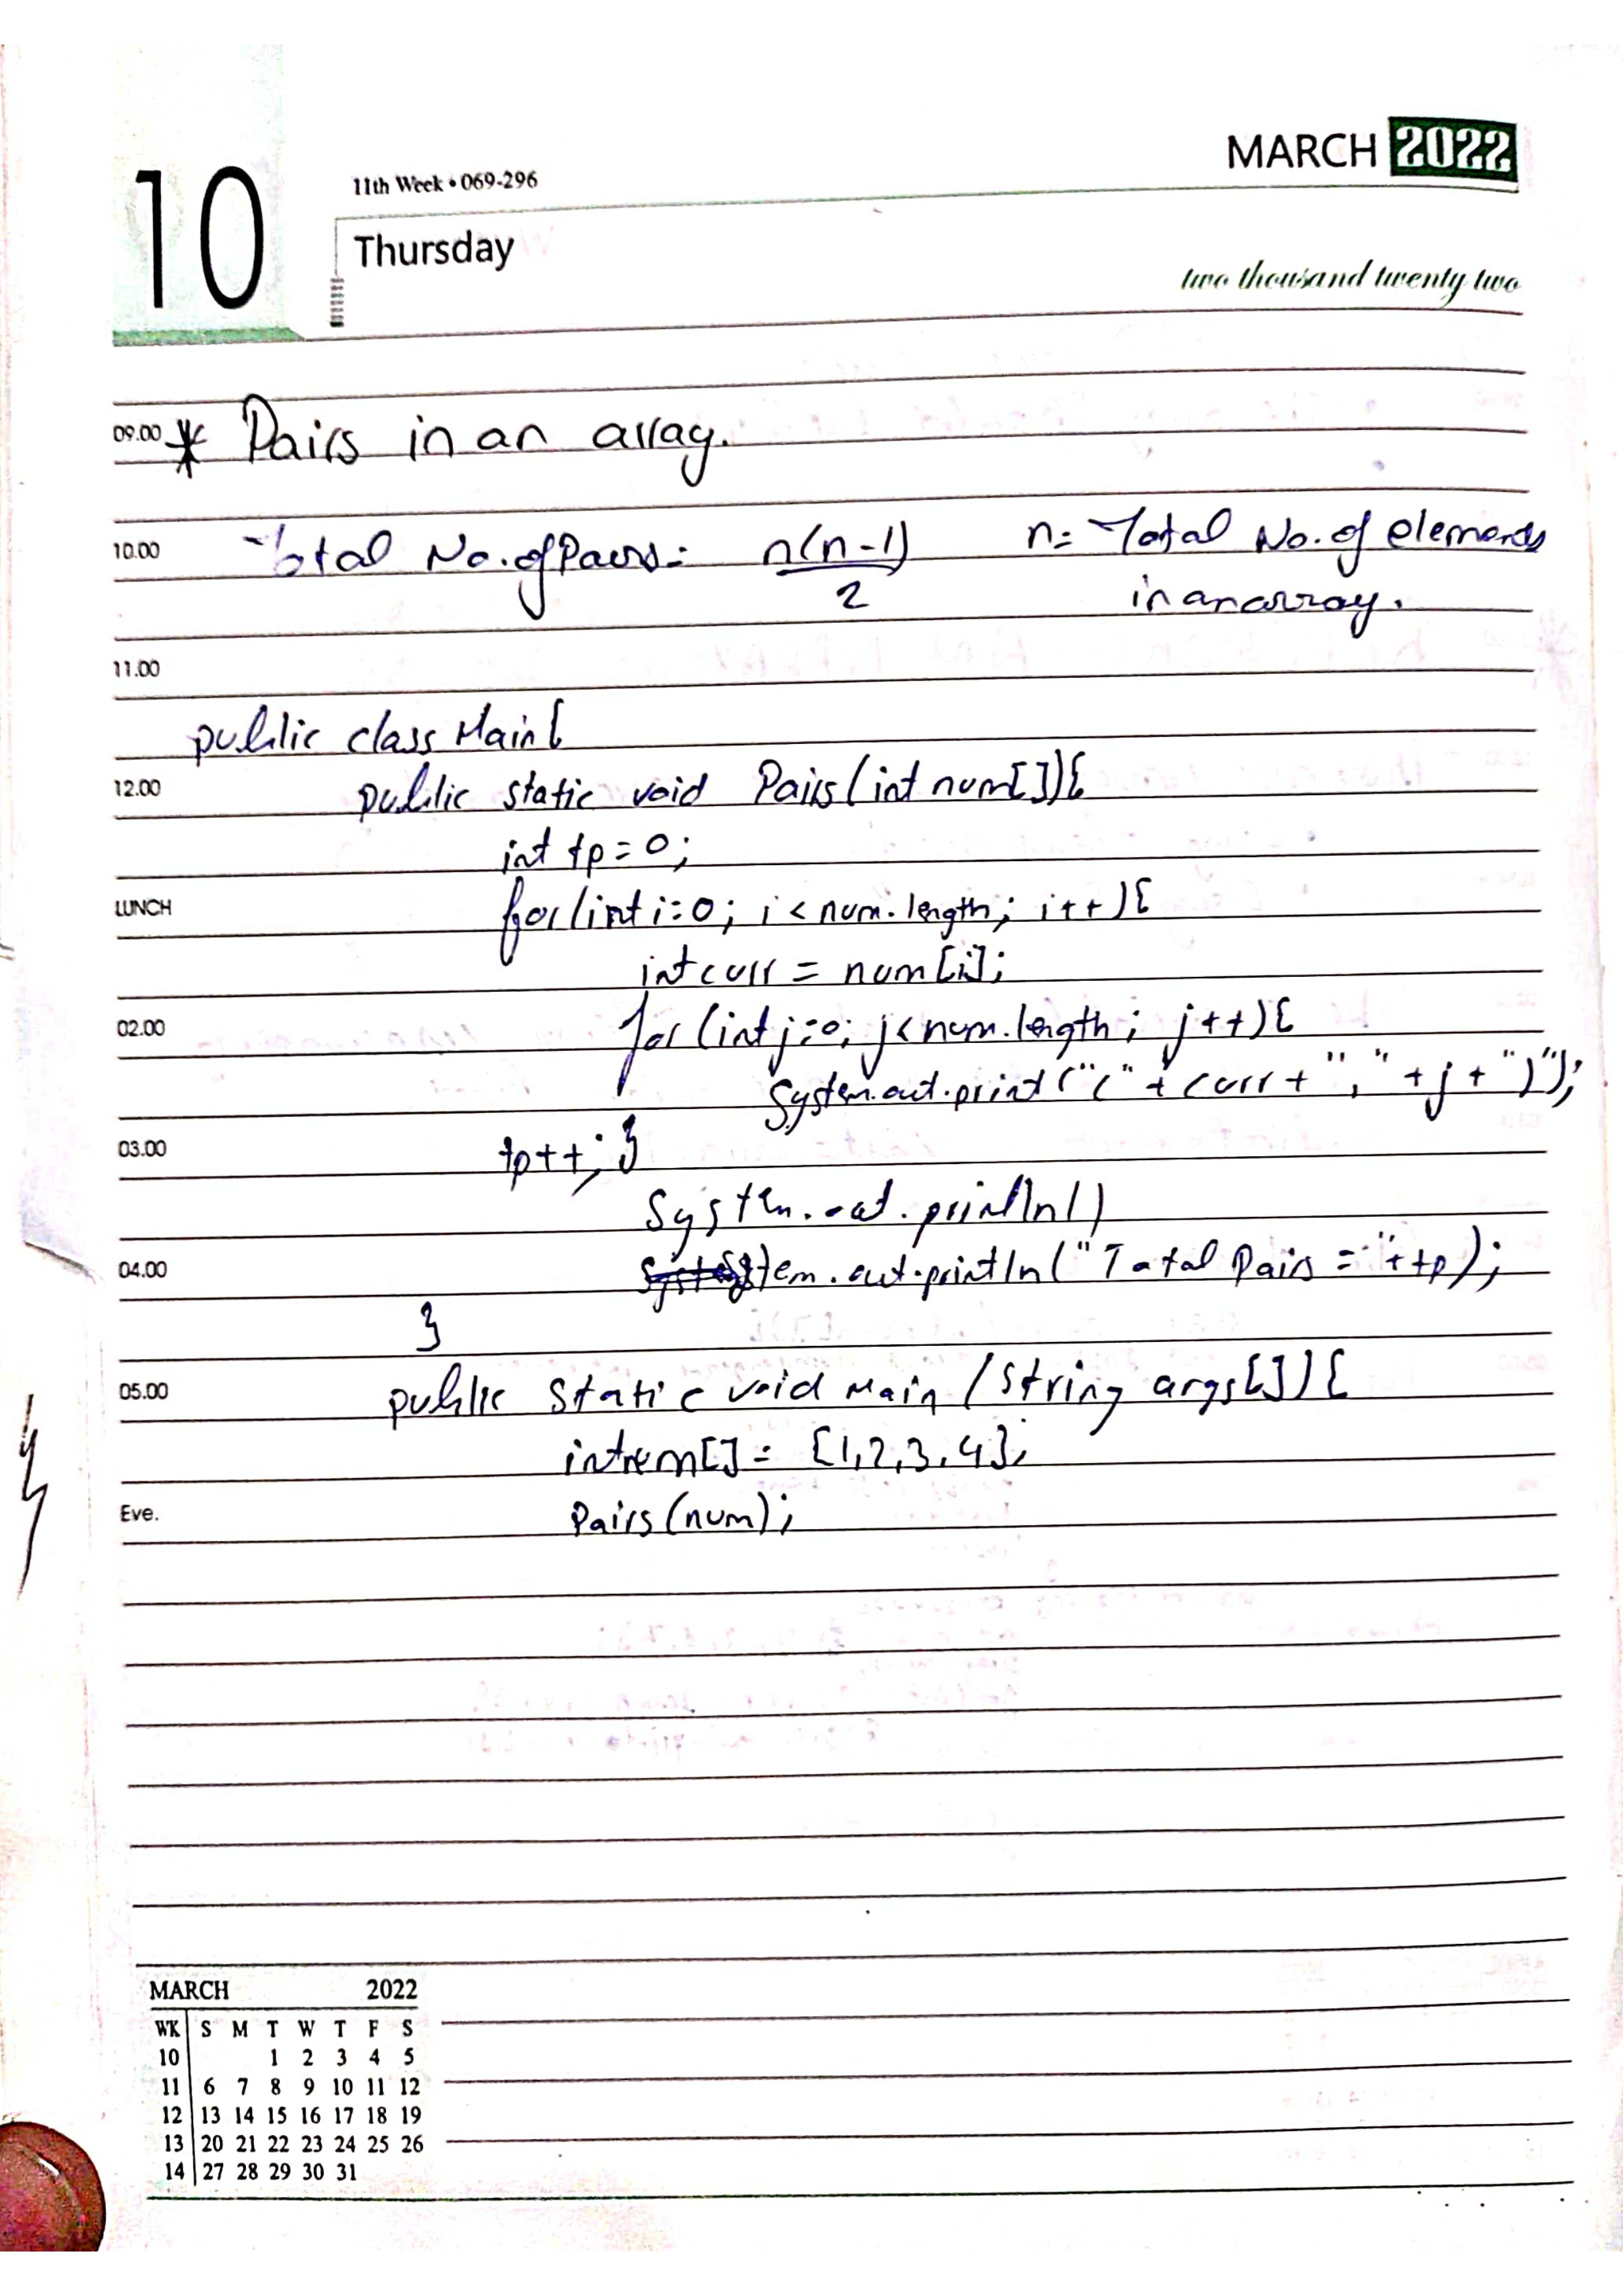 MARCH 2022
10
11th Week • 069-296
Thursday
two thousand twenty two
09.00 * Pairs in an array.
10.00 Total No. of Pairs = n(n-1)/2 n = Total No. of elements
in an array.
11.00
public class Main{
12.00 public static void Pairs(int num[]){
int tp = 0;
LUNCH for(int i=0; i < num.length; i++){
int curr = num[i];
02.00 for(int j=0; j<num.length; j++){
System.out.print("(" + curr + "," + j + ")");
03.00 tp++; }
System.out.println()
04.00 System.out.println("Total Pairs = "+tp);
}
05.00 public static void Main (String args[]){
int num[] = {1,2,3,4};
Eve. Pairs(num);
MARCH 2022
WK S M T W T F S
10 1 2 3 4 5
11 6 7 8 9 10 11 12
12 13 14 15 16 17 18 19
13 20 21 22 23 24 25 26
14 27 28 29 30 31